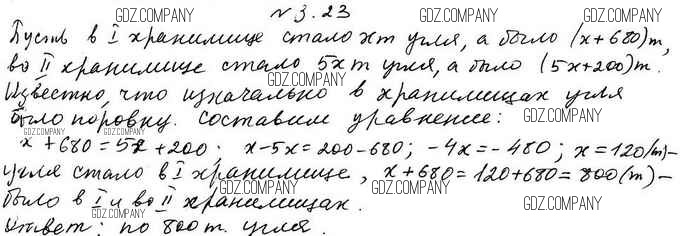 №3.23
Пусть в I хранилище стало x т угля, а было (x+680) т,
во II хранилище стало 5x т угля, а было (5x+200) т.
Известно, что изначально в хранилищах угля
было поровну. Составим уравнение:
x+680=5x+200; x-5x=200-680; -4x=-480; x=120(т)-
угля стало в I хранилище, x+680=120+680=800(т)-
было в I и во II хранилищах.
Ответ: по 800 т. угля.
GDZ.COMPANY GDZ.COMPANY GDZ.COMPANY
GDZ.COMPANY
GDZ.COMPANY GDZ.COMPANY GDZ.COMPANY
GDZ.COMPANY GDZ.COMPANY
GDZ.COMPANY
GDZ.COMPANY GDZ.COMPANY
GDZ.COMPANY GDZ.COMPANY